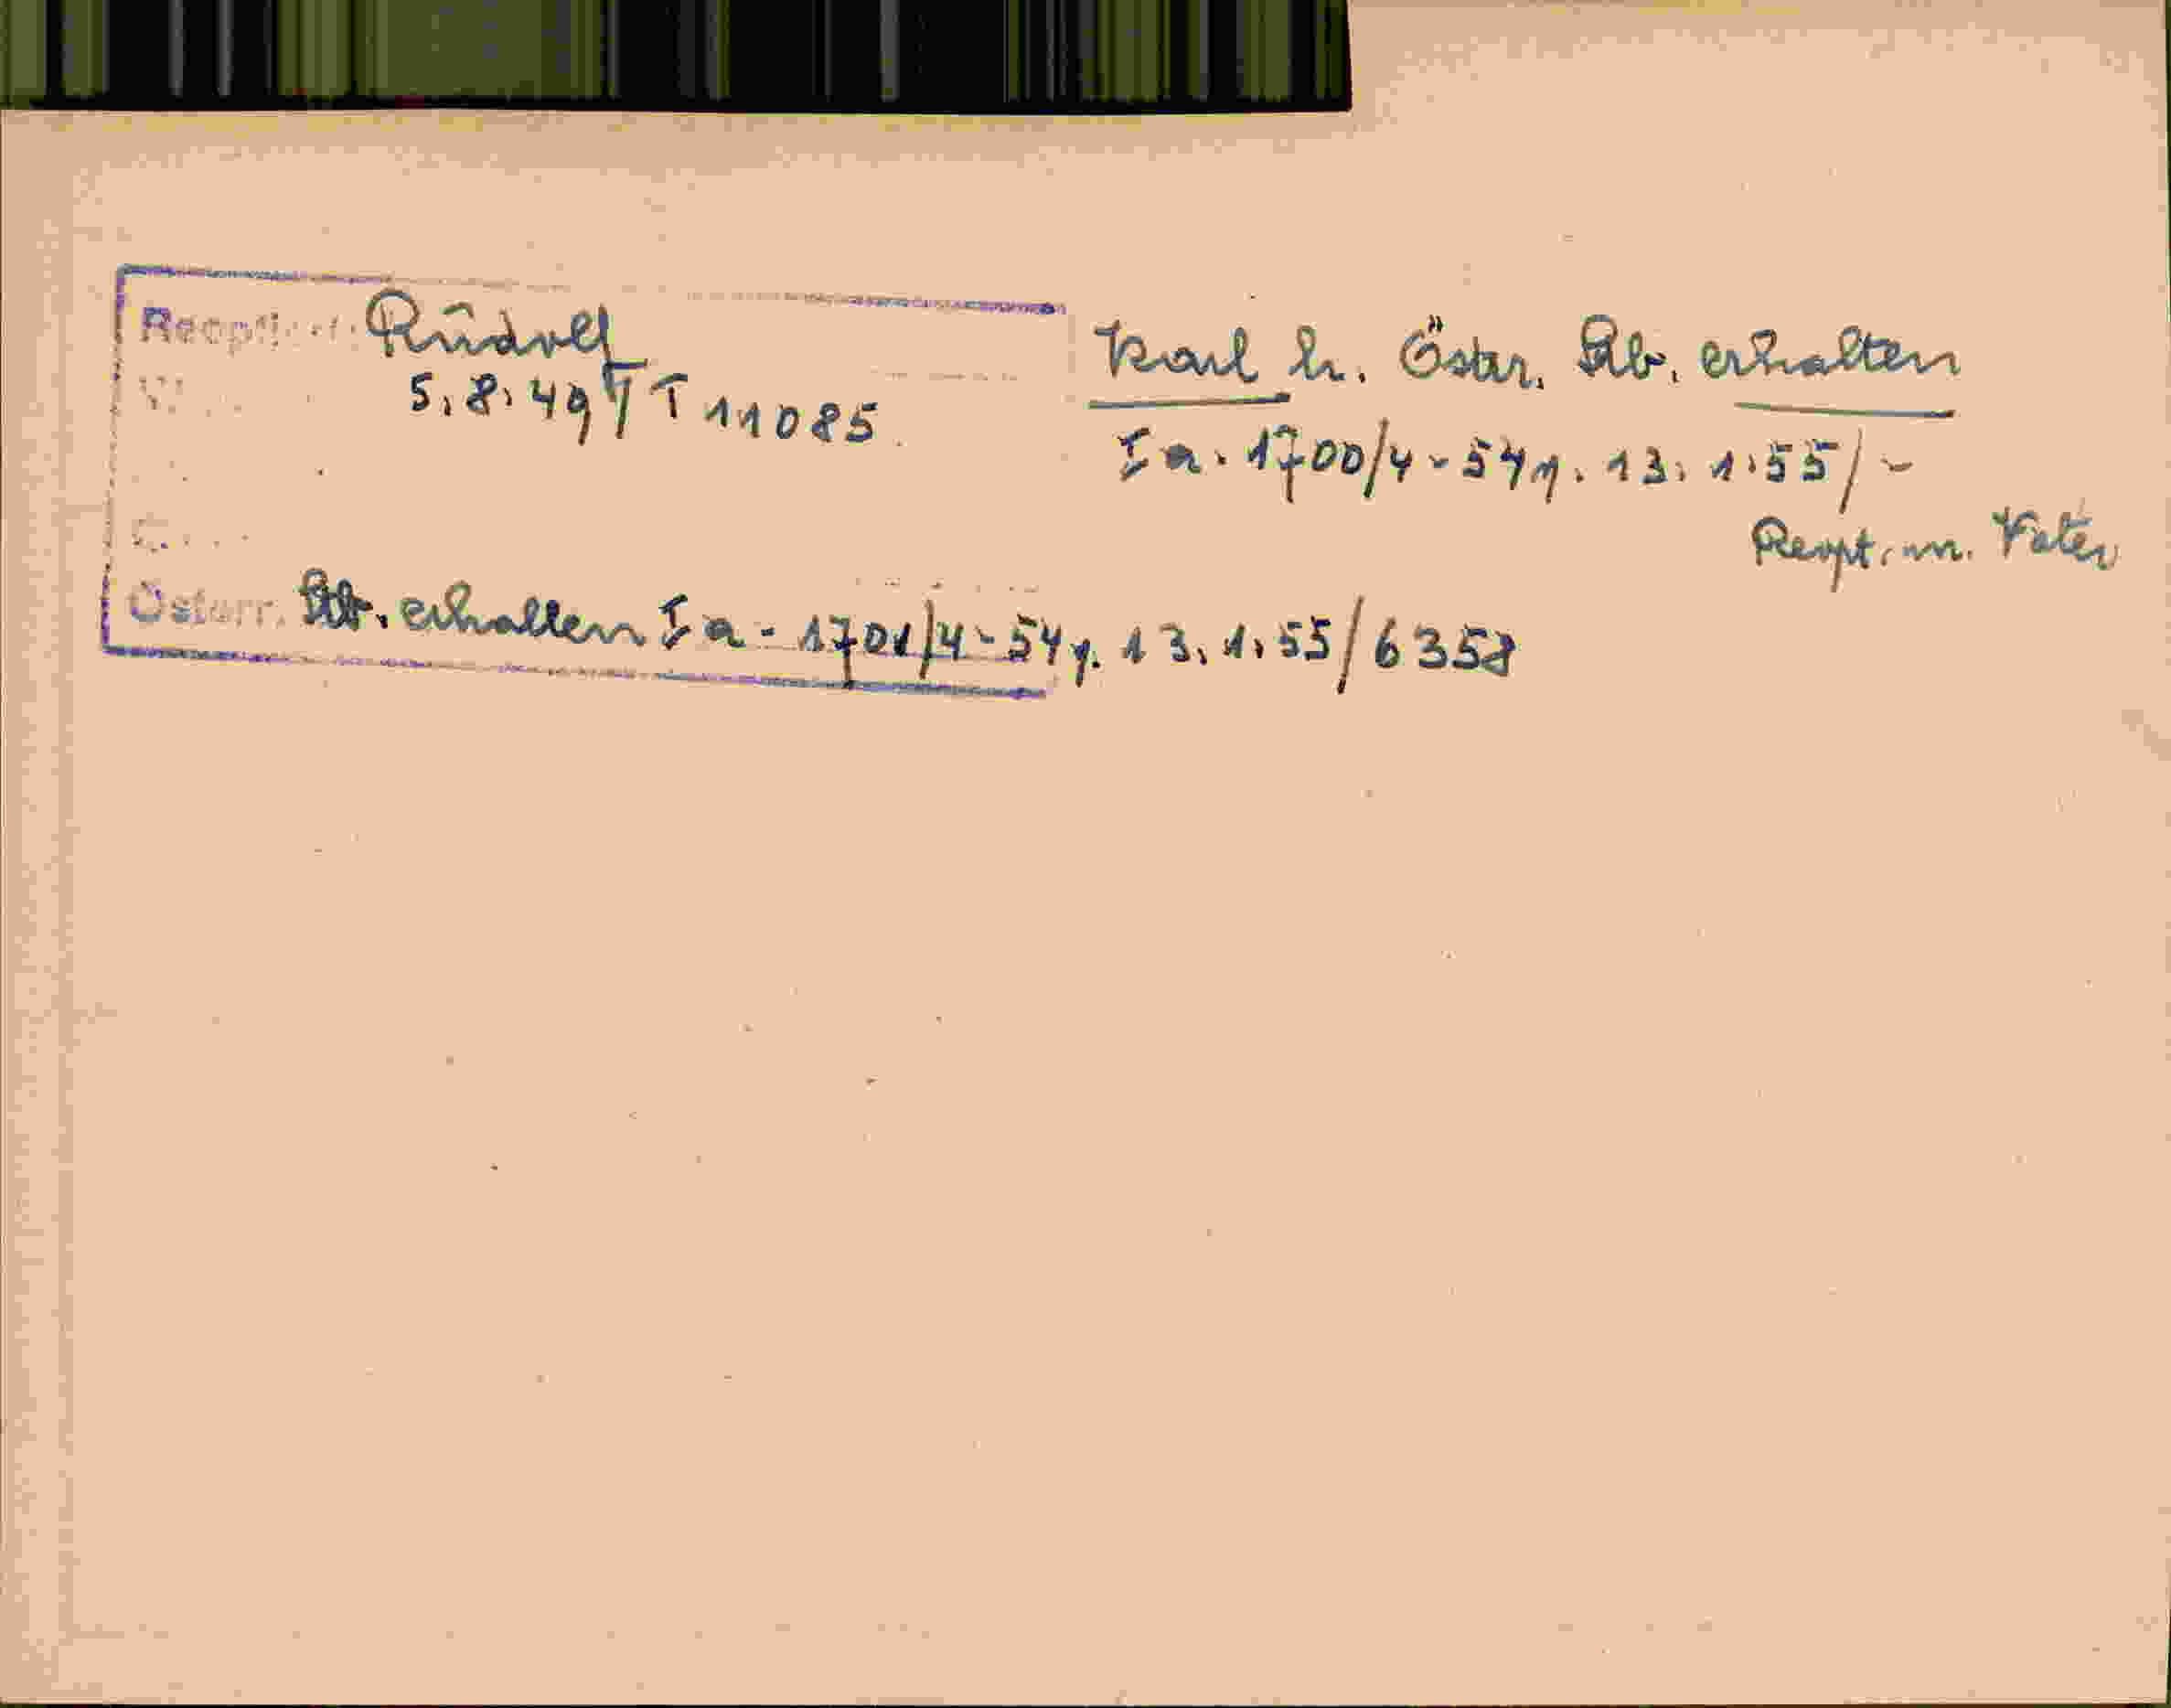 Rudolf
5.8.49 T T 11085
Österr. Stb. erhalten I a - 1701/4-54 v. 13.1.55/6358
Karl h. Östr. Stb. erhalten
I a. 1700/4-54 v. 13.1.55/-
Rept. m. Vater